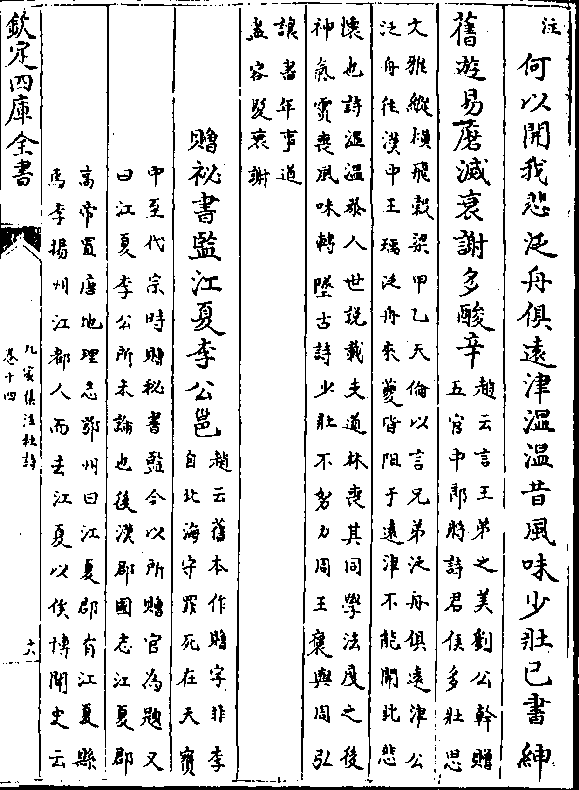 注
何以開我悲泛舟俱遠津溫溫昔風味少壯已書紳
舊遊易磨滅衰謝多酸辛
趙云言王弟之美劉公幹贈
五官中郎將詩君侯多壯思
文雅縱横飛穀梁甲乙天倫以言兄弟泛舟俱遠津公
泛舟往漢中王瑀泛舟來夔皆阻于遠津不能開此悲
懷也詩溫溫恭人世說載支道林喪其同學法虔之後
神氣霣喪風味轉墜古詩少壯不努力周王褒與周弘
讓書年事遒
盡容髮衰謝
贈祕書監江夏李公邕
趙云舊本作贈字非李
自北海守罪死在天寶
中至代宗時贈秘書監今以所贈官為題又
曰江夏李公所未諭也後漢郡國志江夏郡
高帝置唐地理志鄂州曰江夏郡有江夏縣
焉李揚州江都人而去江夏以俟博聞史云
欽定四庫全書
九家集注杜詩
卷十四